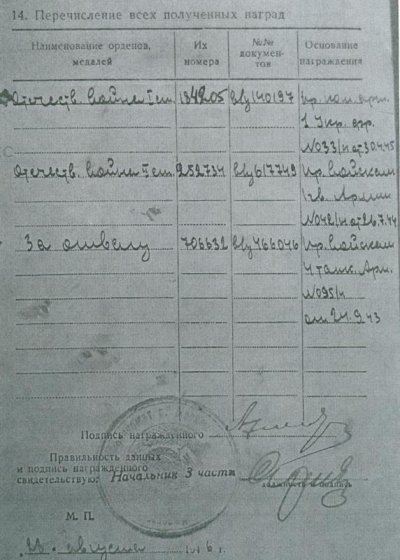 14. Перечисление всех полученных наград
Наименование орденов, медалей
Их номера
№№ документов
Основание награждения
Отечеств. Войны I ст. 134205 140197 Пр. ком. арт.
1 Укр. фр.
№033/н от 30.4.45
Отечеств. Войны II ст. 252734 617749 Пр. Войскам
1 гв. Армии
№042/н от 26.7.44
За отвагу 706632 466046 Пр. Войскам
4 танк. Арм.
№095/н
от 21.9.43
Подпись награжденного
Правильность данных
и подпись награжденного
свидетельствую: Начальник 3 части
М. П.
августа 1946 г.